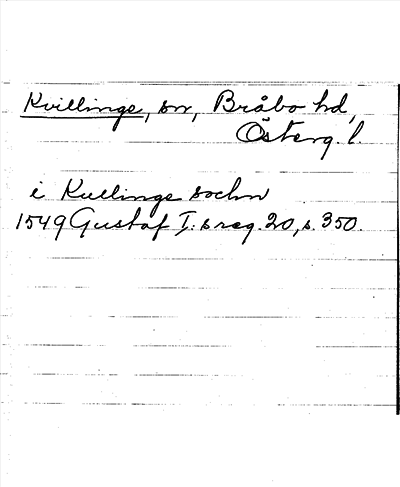 Kvillinge, sn, Bråbo hd,
Österg. l.
i Kullinge sochn
1549 Gustaf I:s reg. 20, s. 350.